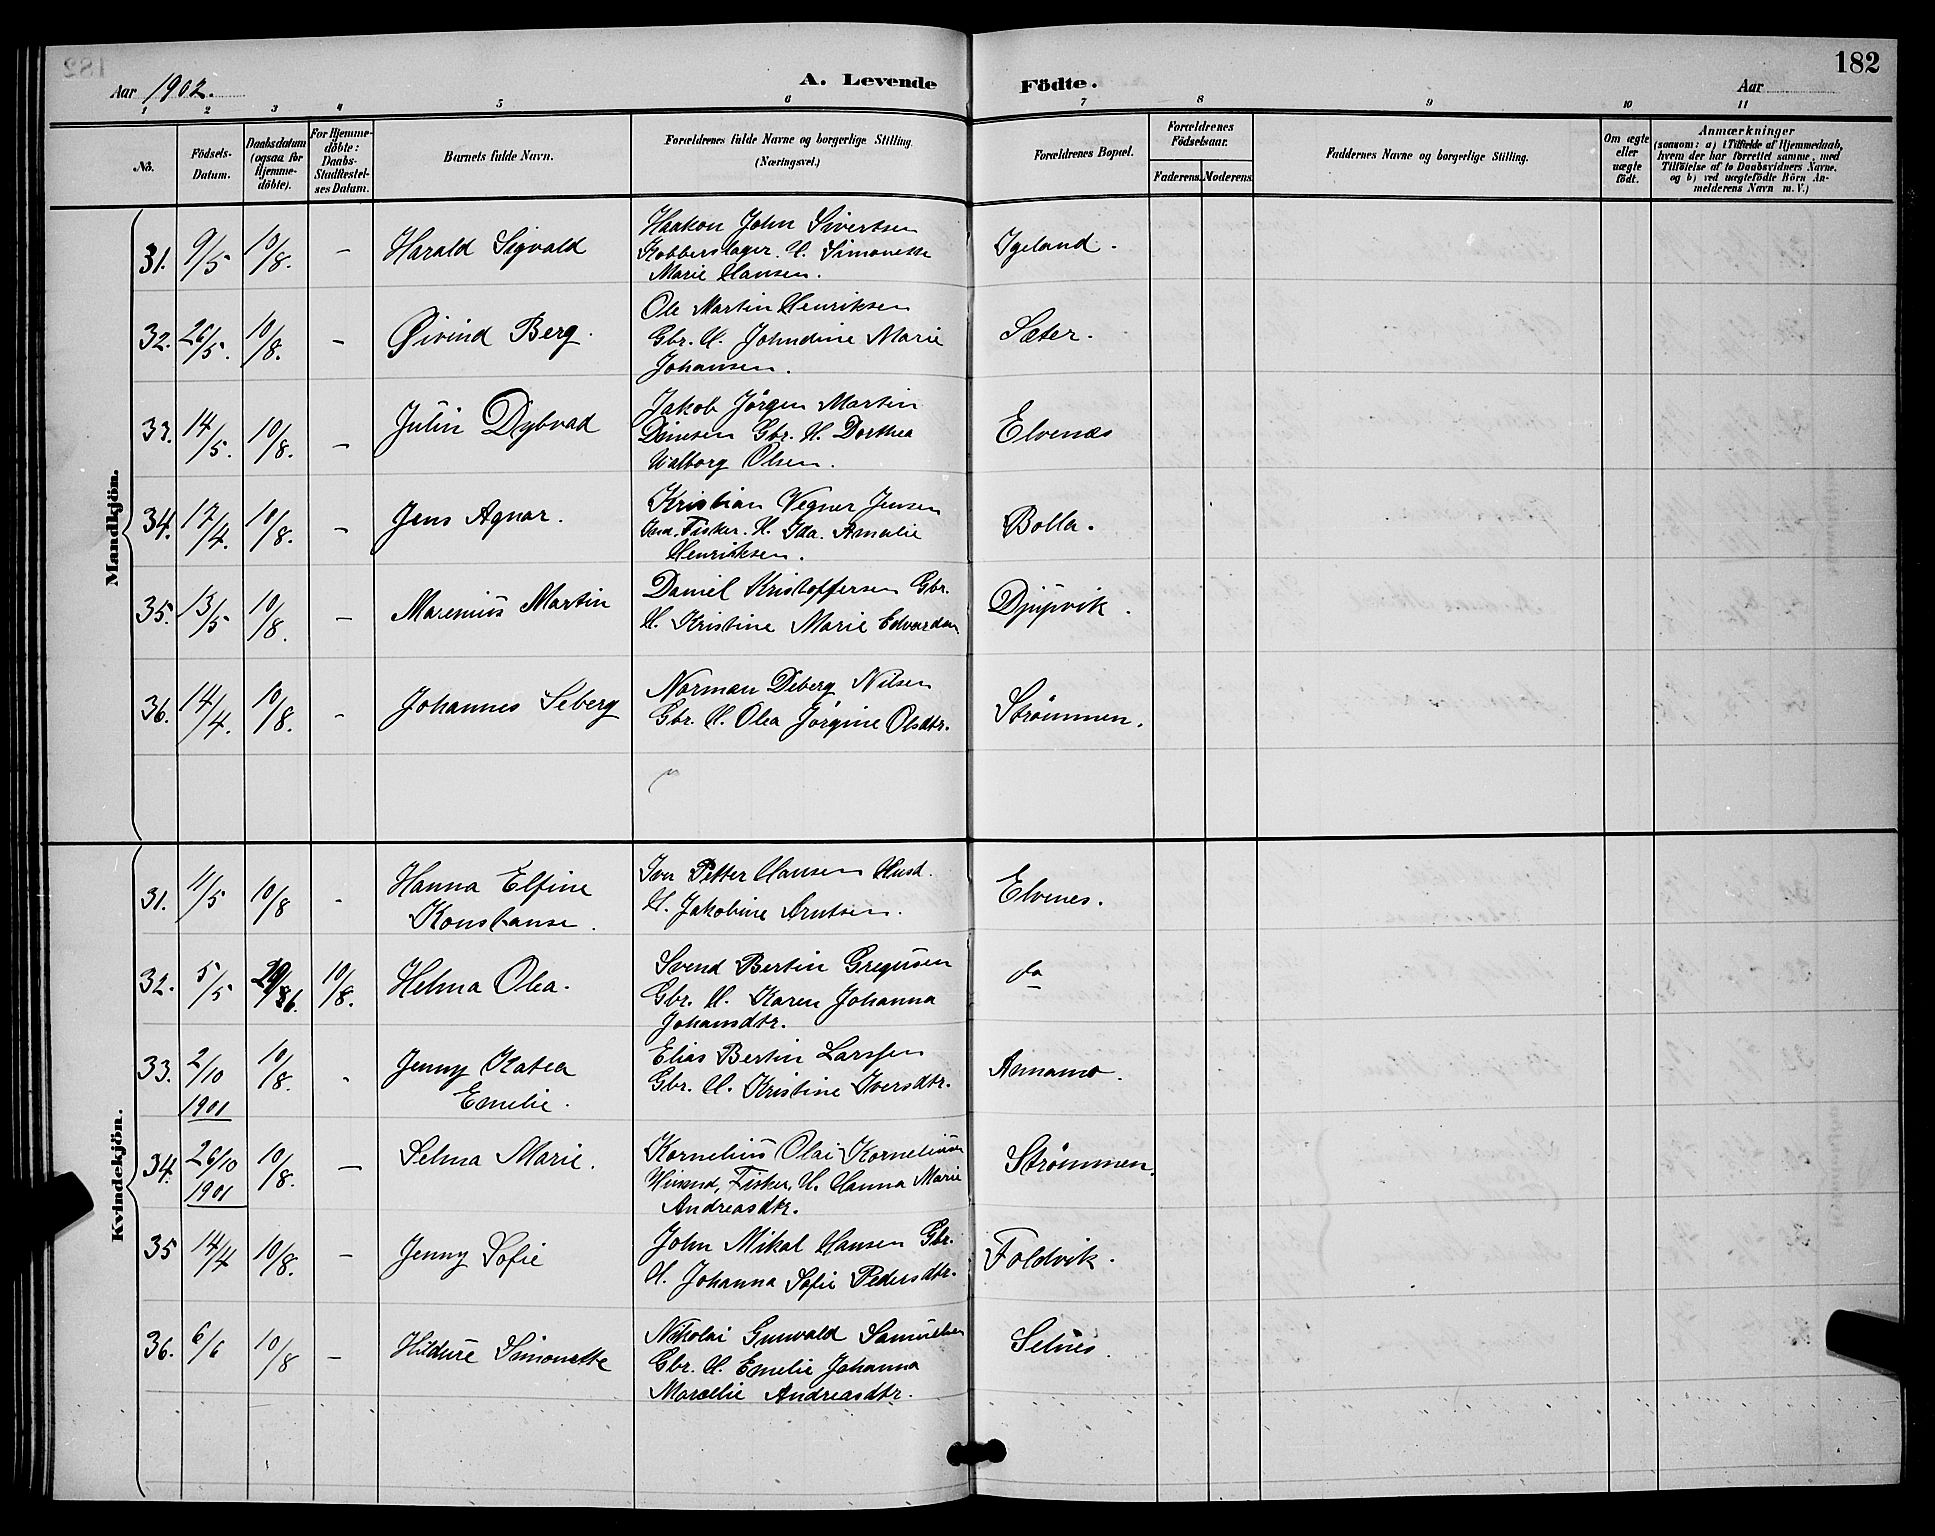 182
Aar 1902.
A. Levende Födte.
Aar
1 2 3 4 5 6 7 8 9 10 11
No.
Födsels-
Datum.
Daabsdatum
(ogsaa for
Hjemme-
döbte).
For Hjemme-
döbte:
Daabs-
Stadfæstel-
ses Datum.
Barnets fulde Navn.
Forældrenes fulde Navne og borgerlige Stilling.
(Næringsvei.)
Forældrenes Bopæl.
Forældrenes
Födselsaar.
Faderens. Moderens.
Faddernes Navne og borgerlige Stilling.
Om ægte
eller
uægte
födt.
Anmærkninger
(saasom: a) i Tilfælde af Hjemmedaab,
hvem der har forrettet samme, med
Tilföielse af to Daabsvidners Navne.
og b) ved uægtefödte Börn An-
melderens Navn m. V.)
Mandkjön.
31. 9/5 10/8. - Harald Sigvald
Haakon John Sivertsen
Kobberslager. H. Simonette
Marie Hansen.
Igeland.
32. 26/5. 10/8. - Øivind Berg.
Ole Martin Henriksen
Gbr. H. Johndine Marie
Johansen.
Sæter.
33. 14/5. 10/8. - Julin Dybvad
Jakob Jörgen Martin
Gbr. H. Dorthea
Walborg Olsen.
Elvenæs
34. 17/4. 10/8. - Jens Agnar.
Kristian Vegner Jensen
Fisker. H. Ida Amalie
Henriksen.
Bolla.
35. 13/5 10/8. - Marenius Martin
Daniel Kristoffersen Gbr.
H. Kristine Marie Edvardsen
Djupvik.
36. 14/4. 10/8. - Johannes Seberg
Norman Deberg Nilsen
Gbr. H. Olea Jörgine Olsdtr.
Strømmen.
Kvindekjön.
31. 11/5 10/8 - Hanna Elfine
Konstanse.
Iver Petter Hansen Husd.
H. Jakobine Arntsen.
Elvenes.
32. 5/5 10/8. Helma Olea.
Svend Bertin Gregusen
Gbr. H. Karen Johanna
Johansdtr.
do
33. 2/10 1901 10/8. - Jenny Katea
Emelie.
Elias Bertin Larssen
Gbr. H. Kristine Iversdtr.
Annamo.
34. 26/10 1901 10/8. - Selma Marie.
Kornelius Olai Korneliussen
Fisker, H. Hanna Marie
Andreasdtr.
Strømmen.
35 14/4 10/8. - Jenny Sofie
John Mikal Hansen Gbr.
H. Johanna Sofie Pedersdtr.
Foldvik.
36. 6/6 10/8 - Hildure Simonette
Nikolai Gunvald Samuelsen
Gbr. H. Emelie Johanna
Marcelie Andreasdtr.
Selnes.